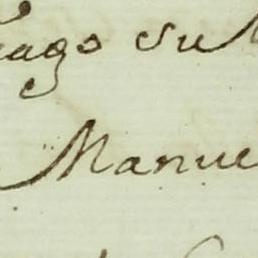 iago su
Manue